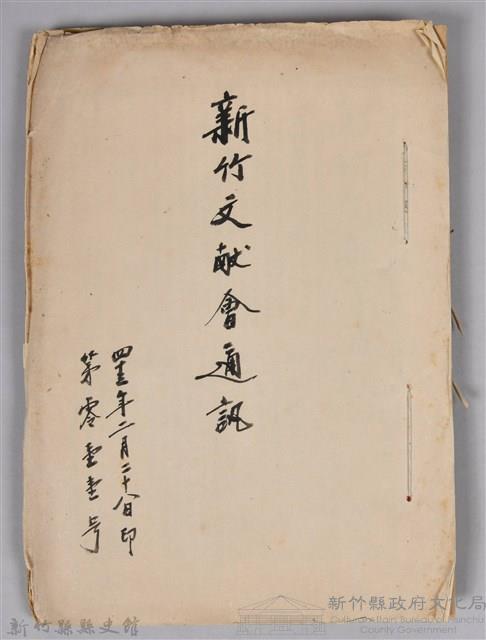 新竹文献會通訊
四十三年二月二十八日印
第零壹壹号
新竹縣縣史館
新竹縣政府文化局
Cultural Affairs Bureau of Hsinchu
County Government